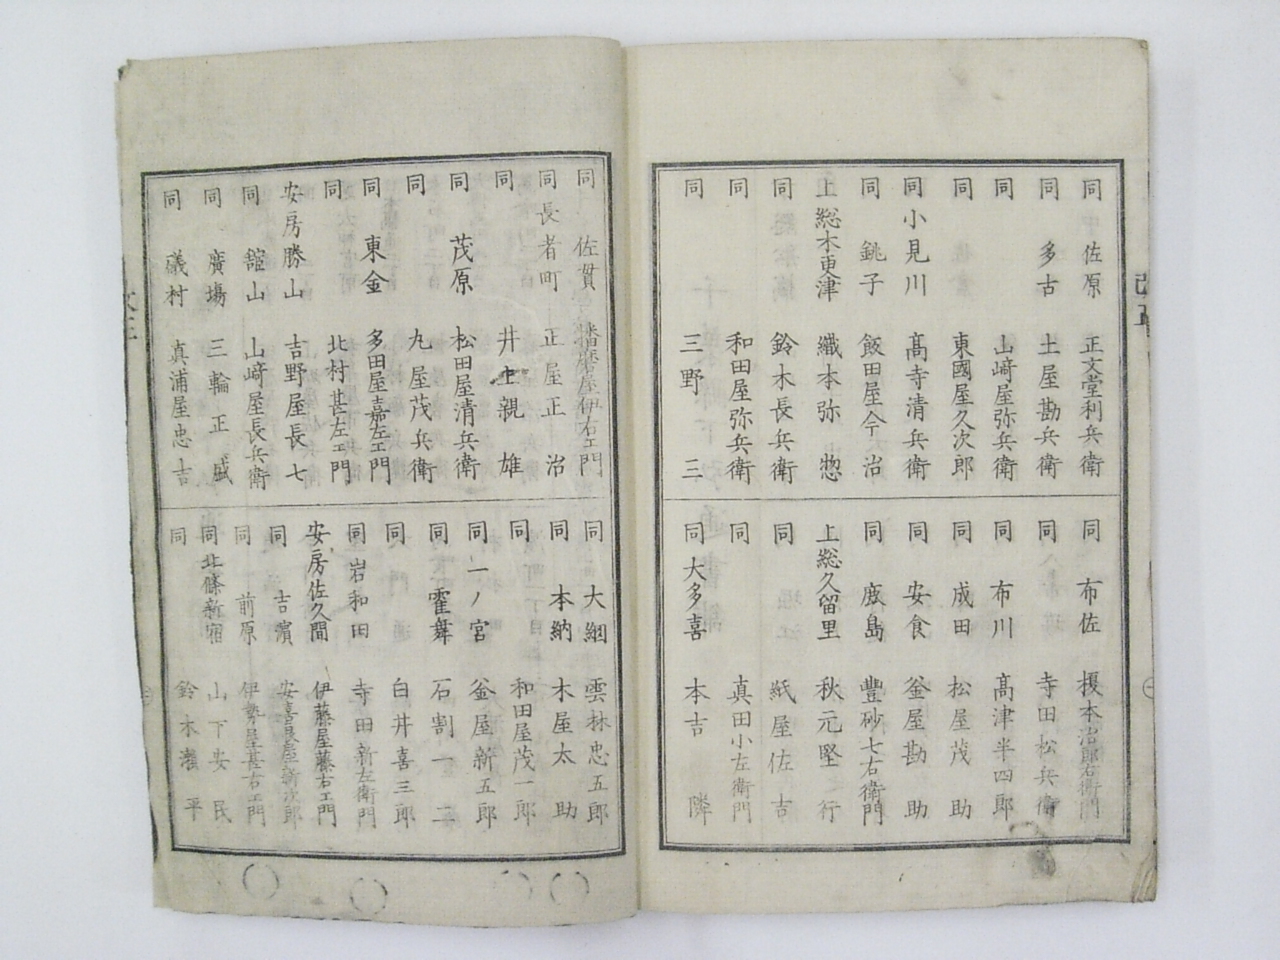 同 佐原 正文堂利兵衛
同 多古 土屋勘兵衛
同 山﨑屋弥兵衛
同 東國屋久次郎
同 小見川 髙寺清兵衛
同 銚子 飯田屋今治
上総木更津 織本弥惣
同 鈴木長兵衛
同 和田屋弥兵衛
同 三野三
同 布佐 榎本治郎右衛門
同 寺田松兵衛
同 布川 髙津半四郎
同 成田 松屋茂助
同 安食 釜屋勘助
同 鹿島 豊砂七右衛門
上総久留里 秋元堅行
同 紙屋佐吉
同 真田小左衛門
同 大多喜 本吉隣
同 佐貫 播磨屋伊右エ門
同 長者町 正屋正治
同 井上親雄
同 茂原 松田屋清兵衛
同 丸屋茂兵衛
同 東金 多田屋嘉左エ門
同 北村甚左エ門
安房勝山 吉野屋長七
同 舘山 山﨑屋長兵衛
同 廣塲 三輪正
同 礒村 真浦屋忠吉
同 大網 雲林忠五郎
同 本納 木屋太助
同 和田屋茂一郎
同 一ノ宮 釜屋新五郎
同 石割一二
同 白井喜三郎
同 岩和田 寺田新左衛門
安房佐久間 伊藤屋藤右エ門
同 吉濱 安喜良屋新次郎
同 前原 伊勢屋甚右エ門
同 北條新宿 山下安民
同 鈴木平